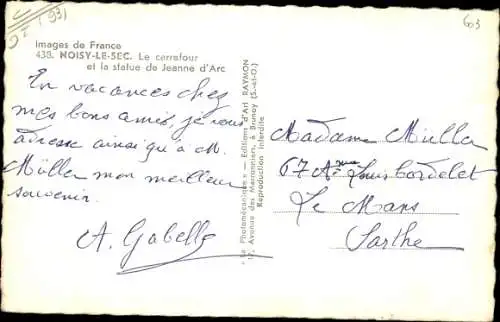 (93)
603
Images de France
438. NOISY-LE-SEC. Le carrefour
et la statue de Jeanne d'Arc
En vacances chez
mes bons amis, je vous
adresse ainsi qu'à M.
Müller mon meilleur
souvenir.
A. Gabelle
« Le Photomécanique » — Editions d'Art RAYMON
17, Avenue des Marronniers, à Brunoy (S.-et-O.)
Reproduction interdite
Madame Müller
67 Anne Louis Bordelet
Le Mans
Sarthe